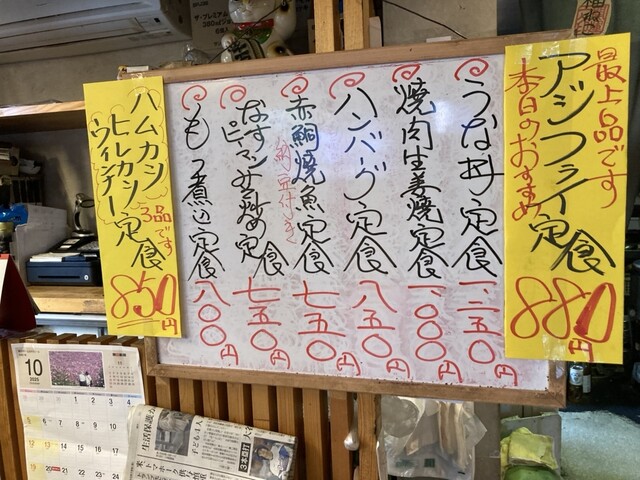 最上品です
本日のおすすめ
アジフライ定食
880円
うな丼定食
一、二五〇円
焼肉生姜焼定食
一、〇〇〇円
ハンバーグ定食
八五〇円
赤鯛焼魚定食
納豆付き
七五〇円
なす
ピーマンみそ炒め定食
七五〇円
もつ煮込定食
八〇〇円
ハムカツ
ヒレカツ
ウィンナー定食
3品です
850円
10
2025
1 2 3 4